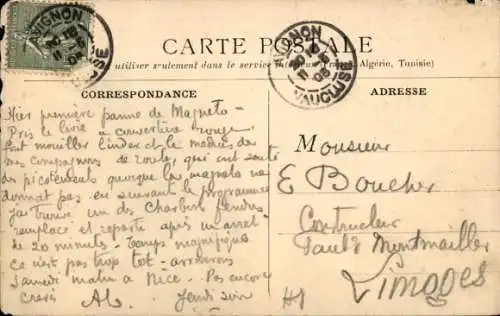 CARTE POSTALE
utiliser seulement dans le service Algérie, Tunisie)
CORRESPONDANCE
ADRESSE
AVIGNON
VAUCLUSE
AVIGNON
VAUCLUSE
Hier première panne de Magneto -
Pris le livre à couverture rouge
fait mouiller l'index et le
mes compagnons de route, qui ont senti
des picotements quoique la magneto ne
donnat pas - en suivant le programme
j'ai trouvé un des Charbons fendus
remplacé et reparti après un arrêt
de 20 minutes - Temps magnifique
ce n'est pas trop tot - arriverons
Samedi matin à Nice. Pas encore
crevé Jeudi soir
Monsieur
E Boucher
Constructeur
Montmailler
Limoges